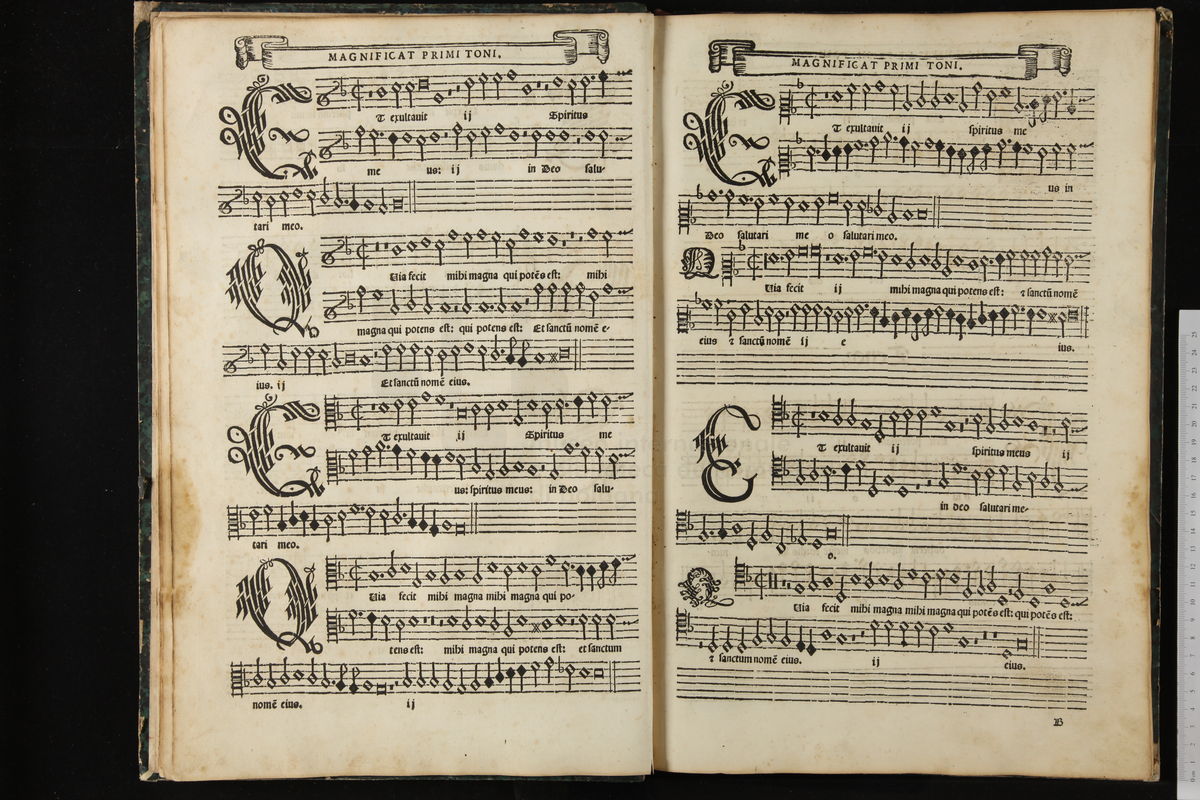 MAGNIFICAT PRIMI TONI.
Et exultauit ij Spiritus
me us: ij in Deo salu-
tari meo.
Quia fecit mihi magna qui potēs est: mihi
magna qui potens est: qui potens est: Et sanctū nomē e-
ius. ij Et sanctū nomē eius.
Et exultauit ij Spiritus me
us: spiritus meus: in Deo salu-
tari meo.
Quia fecit mihi magna mihi magna qui po-
tens est: mihi magna qui potens est: et sanctum
nomē eius. ij
MAGNIFICAT PRIMI TONI.
Et exultauit ij spiritus me
us in
Deo salutari me o salutari meo.
Quia fecit ij mihi magna qui potens est: ⁊ sanctū nomē
eius ⁊ sanctū nomē ij e ius.
Et exultauit ij spiritus meus ij
in deo salutari me-
o.
Quia fecit mihi magna mihi magna qui potēs est: qui potēs est:
⁊ sanctum nomē eius. ij eius.
B